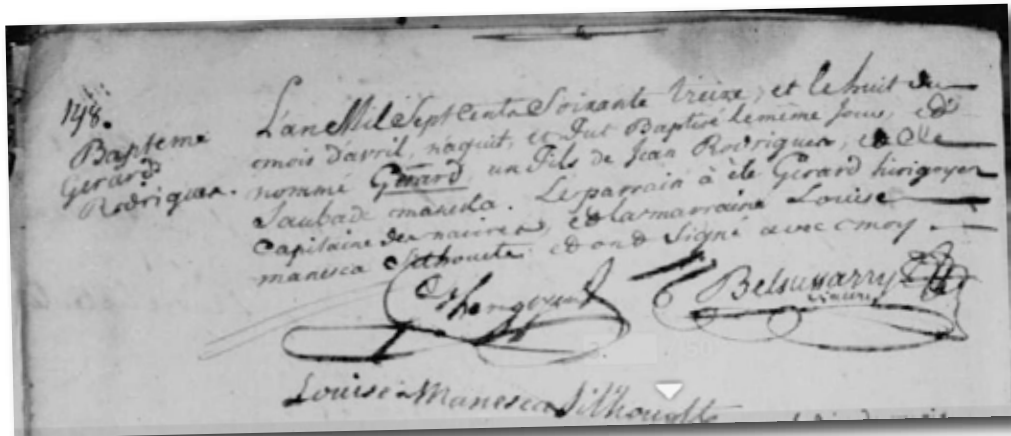 148.
Bapteme
Gerard
Rodriguez.
L'an Mil Sept Cents Soixante treize, et le huit du
mois d'avril, naquit, et fut Baptisé le même Jour, et
nommé Gerard, un fils de Jean Rodriguez, et de
Saubade . Le parrain à été Gerard hirigoyen
Capitaine de navires, et la marraine Louise
manesca Silhouete et ont Signé avec moy.
hirigoyen
Belsussarry
vicaire
Louise Manesca Silhouette